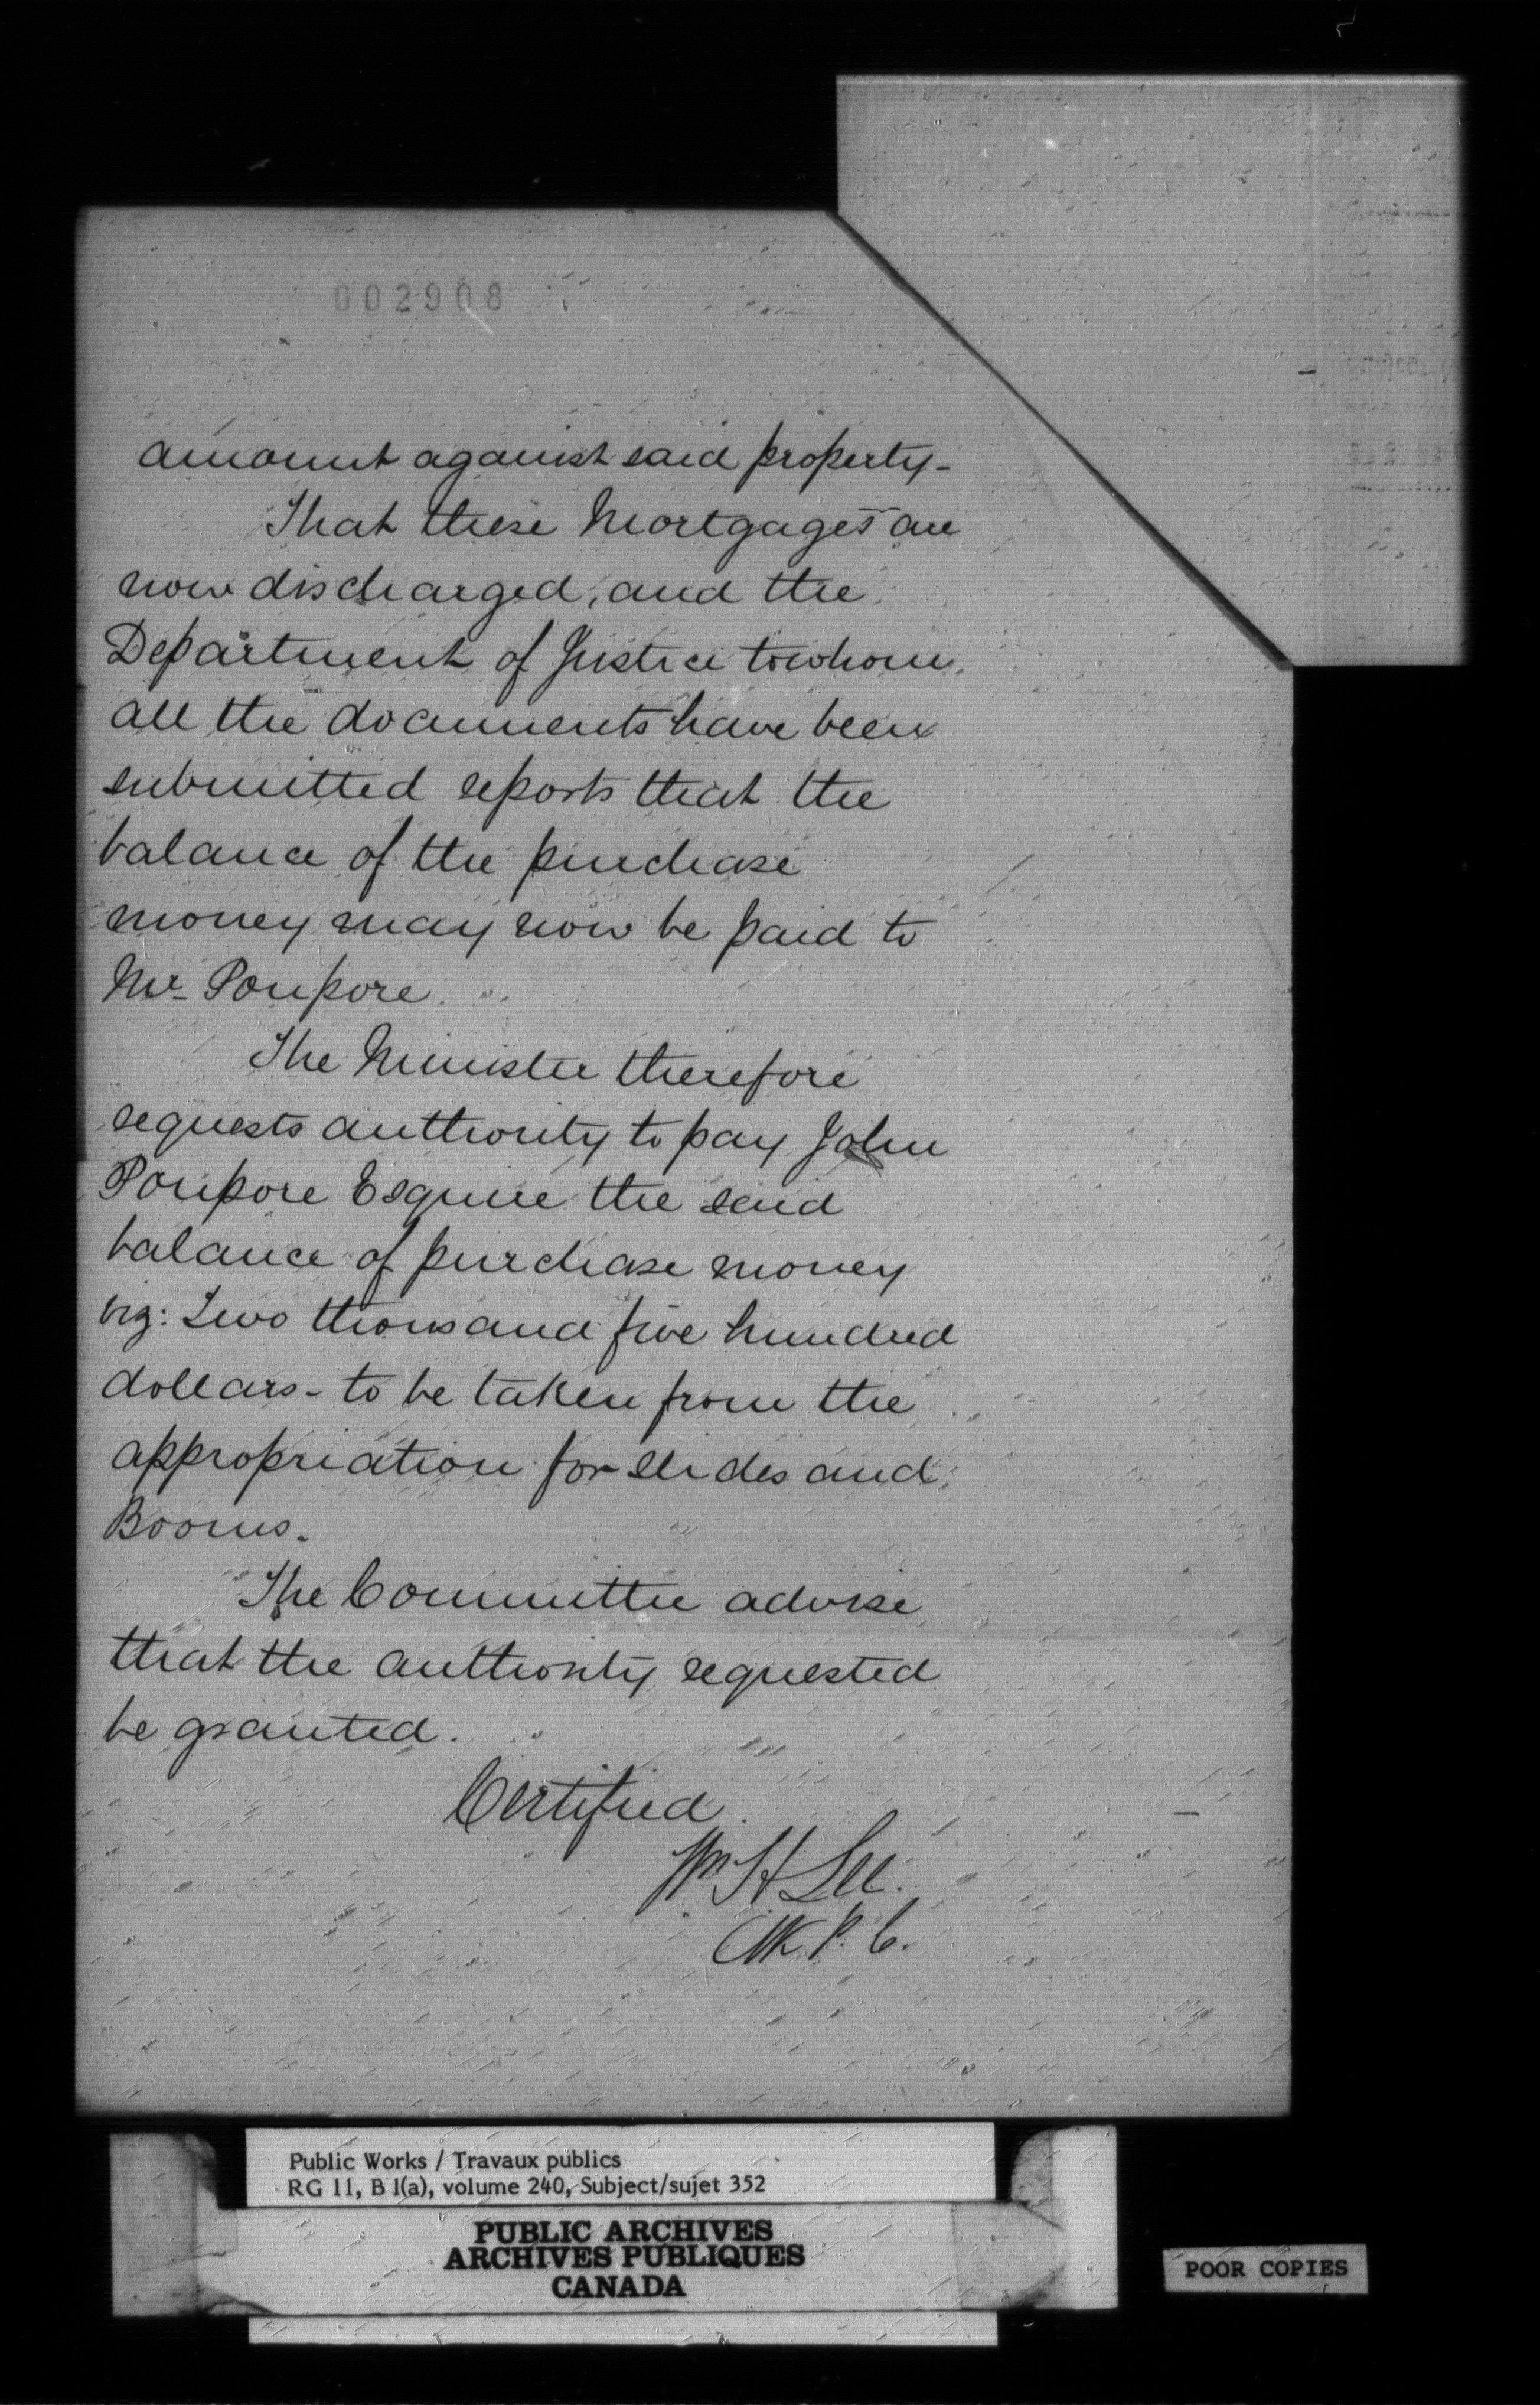 002908
amount against said property-
That these Mortgages are
now discharged, and the
Department of Justice to whom
all the documents have been
submitted reports that the
balance of the purchase
money may now be paid to
Mr. Poupore.
The Minister therefore
requests authority to pay John
Poupore Esquire the said
balance of purchase money
viz: Two thousand five hundred
dollars - to be taken from the
appropriation for slides and
Booms.
The Committee advise
that the authority requested
be granted.
Certified
Wm H Lee.
Clk P. C.
Public Works / Travaux publics
RG 11, B 1(a), volume 240, Subject/sujet 352
PUBLIC ARCHIVES
ARCHIVES PUBLIQUES
CANADA
POOR COPIES